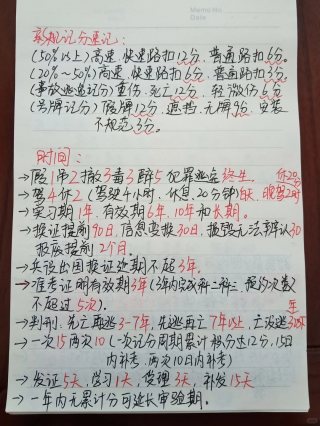 Memo No
Date
新规记分速记:
(50%以上)高速、快速路扣12分、普通路扣6分。
(20%~50%)高速、快速路扣6分、普通路扣3分。
(事故逃逸记分)重伤、死亡12分、轻微伤6分
(号牌记分)假牌12分、遮挡、无牌9分、安装
不规范3分。
时间:
→假1吊2撤3毒3醉5 犯罪逃逸终生。
→驾4休2 (驾驶4小时、休息20分钟)
→实习期1年、有效期6年、10年和长期。
→换证提前90日、信息变换30日、损毁无法辨认30
报废提前2个月。
→兵役出国换证延期不超3年。
→准考证明有效期3年(3年内完成科二科三、预约次数
不超过5次)。
→判刑、先亡再逃3-7年、先逃再亡7年以上、
→一次15两次10(一次记分周期累计积分达12分、15日
内补考、两次10日内补考)
→发证5天、学习1天、受理3天、补发15天
→一年内无累计分可延长审验期。